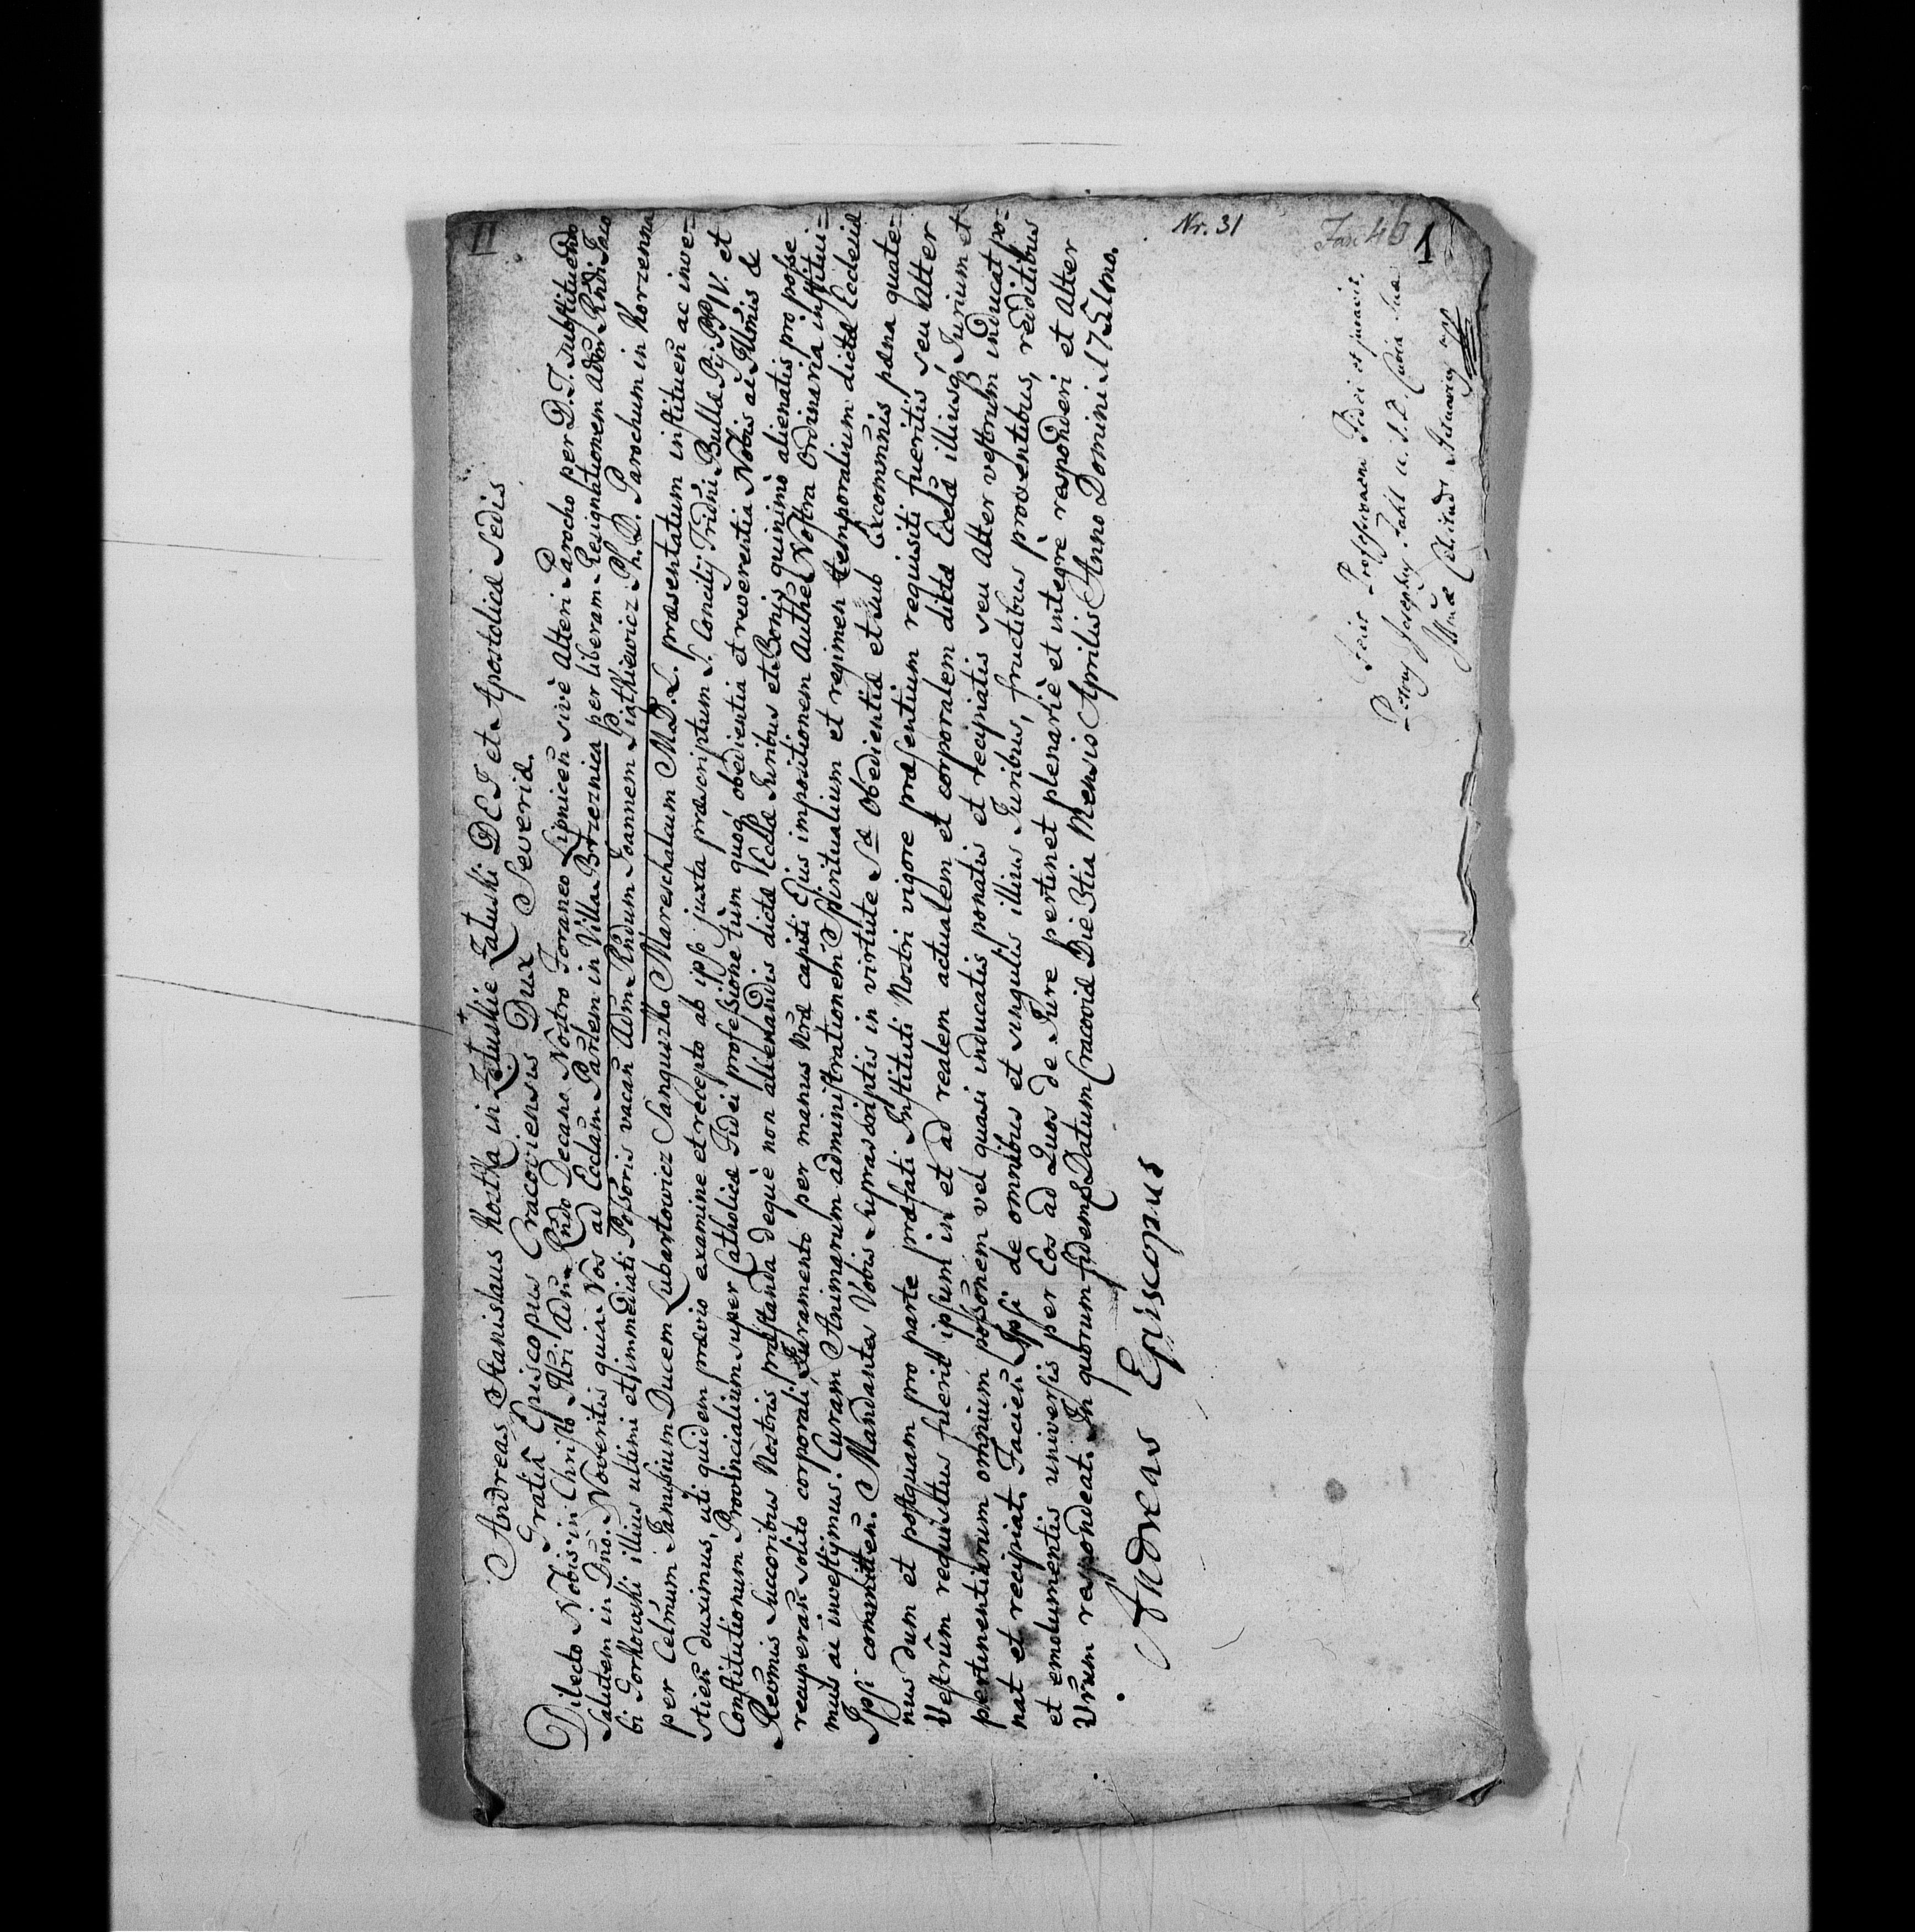 II
Andreas Stanislaus Kostka in Załuskie Załuski DEI et Apostolicæ Sedis
Gratiâ Episcopus Cracoviensis Dux Severiæ.
Dilecto Nobis in Christo Adm Rndo Decano Nostro Foraneo Lipnicen sivè Alteri Parocho per D. T. substituendo
Salutem in Dno. Noveritis quia Nos ad Ecclam Parlem in Villa Brzeznica per liberam Resignationem Adm Rndi Jaco
bi Gorkowski illius ultimi et immediati Possoris vacan Adm Rndum Joannem Piątkiewicz Ph. D. Parochum in Korzenna
per Celmum Janusium Ducem Lubartowicz Sanguszko Mareschalcum M. D. L. præsentatum instituen ac inve=
stien duximus, uti quidem prævio examine et recepto ab ipso juxta præscriptum S. Concilij Tridni Bullæ Pij PP IV. et
Constitutionum Provincialium super Catholicæ Fidei professione tùm quoq obedientia et reverentia Nobis ac Illmis &
Revmis Successoribus Nostris præstanda dequè non alienandis dictæ Ecclæ Juribus et Bonis quinimò alienatis pro posse
recuperan solito corporali Juramento per manus Nras capiti Ejus impositionem Authe Nostra Ordinaria institui=
mus ac investijmus. Curam Animarum administrationem Spiritualium et regimen temporalium dictæ Ecclesiæ
Ipsi committen. Mandantes Vobis suprascriptis in virtute Stæ Obedientiæ et sub Excommnis pæna quate=
nus dum et postquam pro parte præfati Instituti Nostri vigore præsentium requisiti fueritis seu Alter
Vestrûm requisitus fuerit ipsum in et ad realem actualem et corporalem dictæ Eclæ illiusq Jurium et
pertinentiarum omnium possonem vel quasi inducatis ponatis et recipiatis seu Alter vestrum inducat po-
nat et recipiat. Facien Ipsi de omnibus et singulis illius Juribus, fructibus proventibus, redditibus
et emolumentis universis per Eos ad Quos de Jure pertinet plenariè et integrè responderi et Alter
Vrum respondeat. In quorum fidem Datum Cracoviæ Die 3tia Mensis Aprilis Anno Domini
Andreas Episcopus
Nr. 31
1
Fecit Professionem Fidei et juravit.
Curia Sua